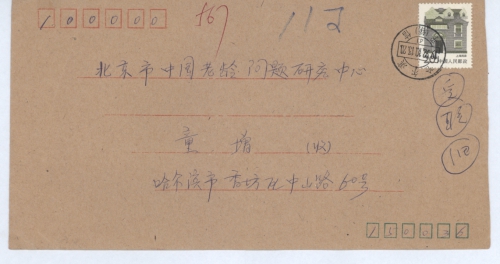 100000
567
112
北京市中国老龄问题研究中心
童增（收）
哈尔滨市香坊区中山路60号
中国人民邮政
112